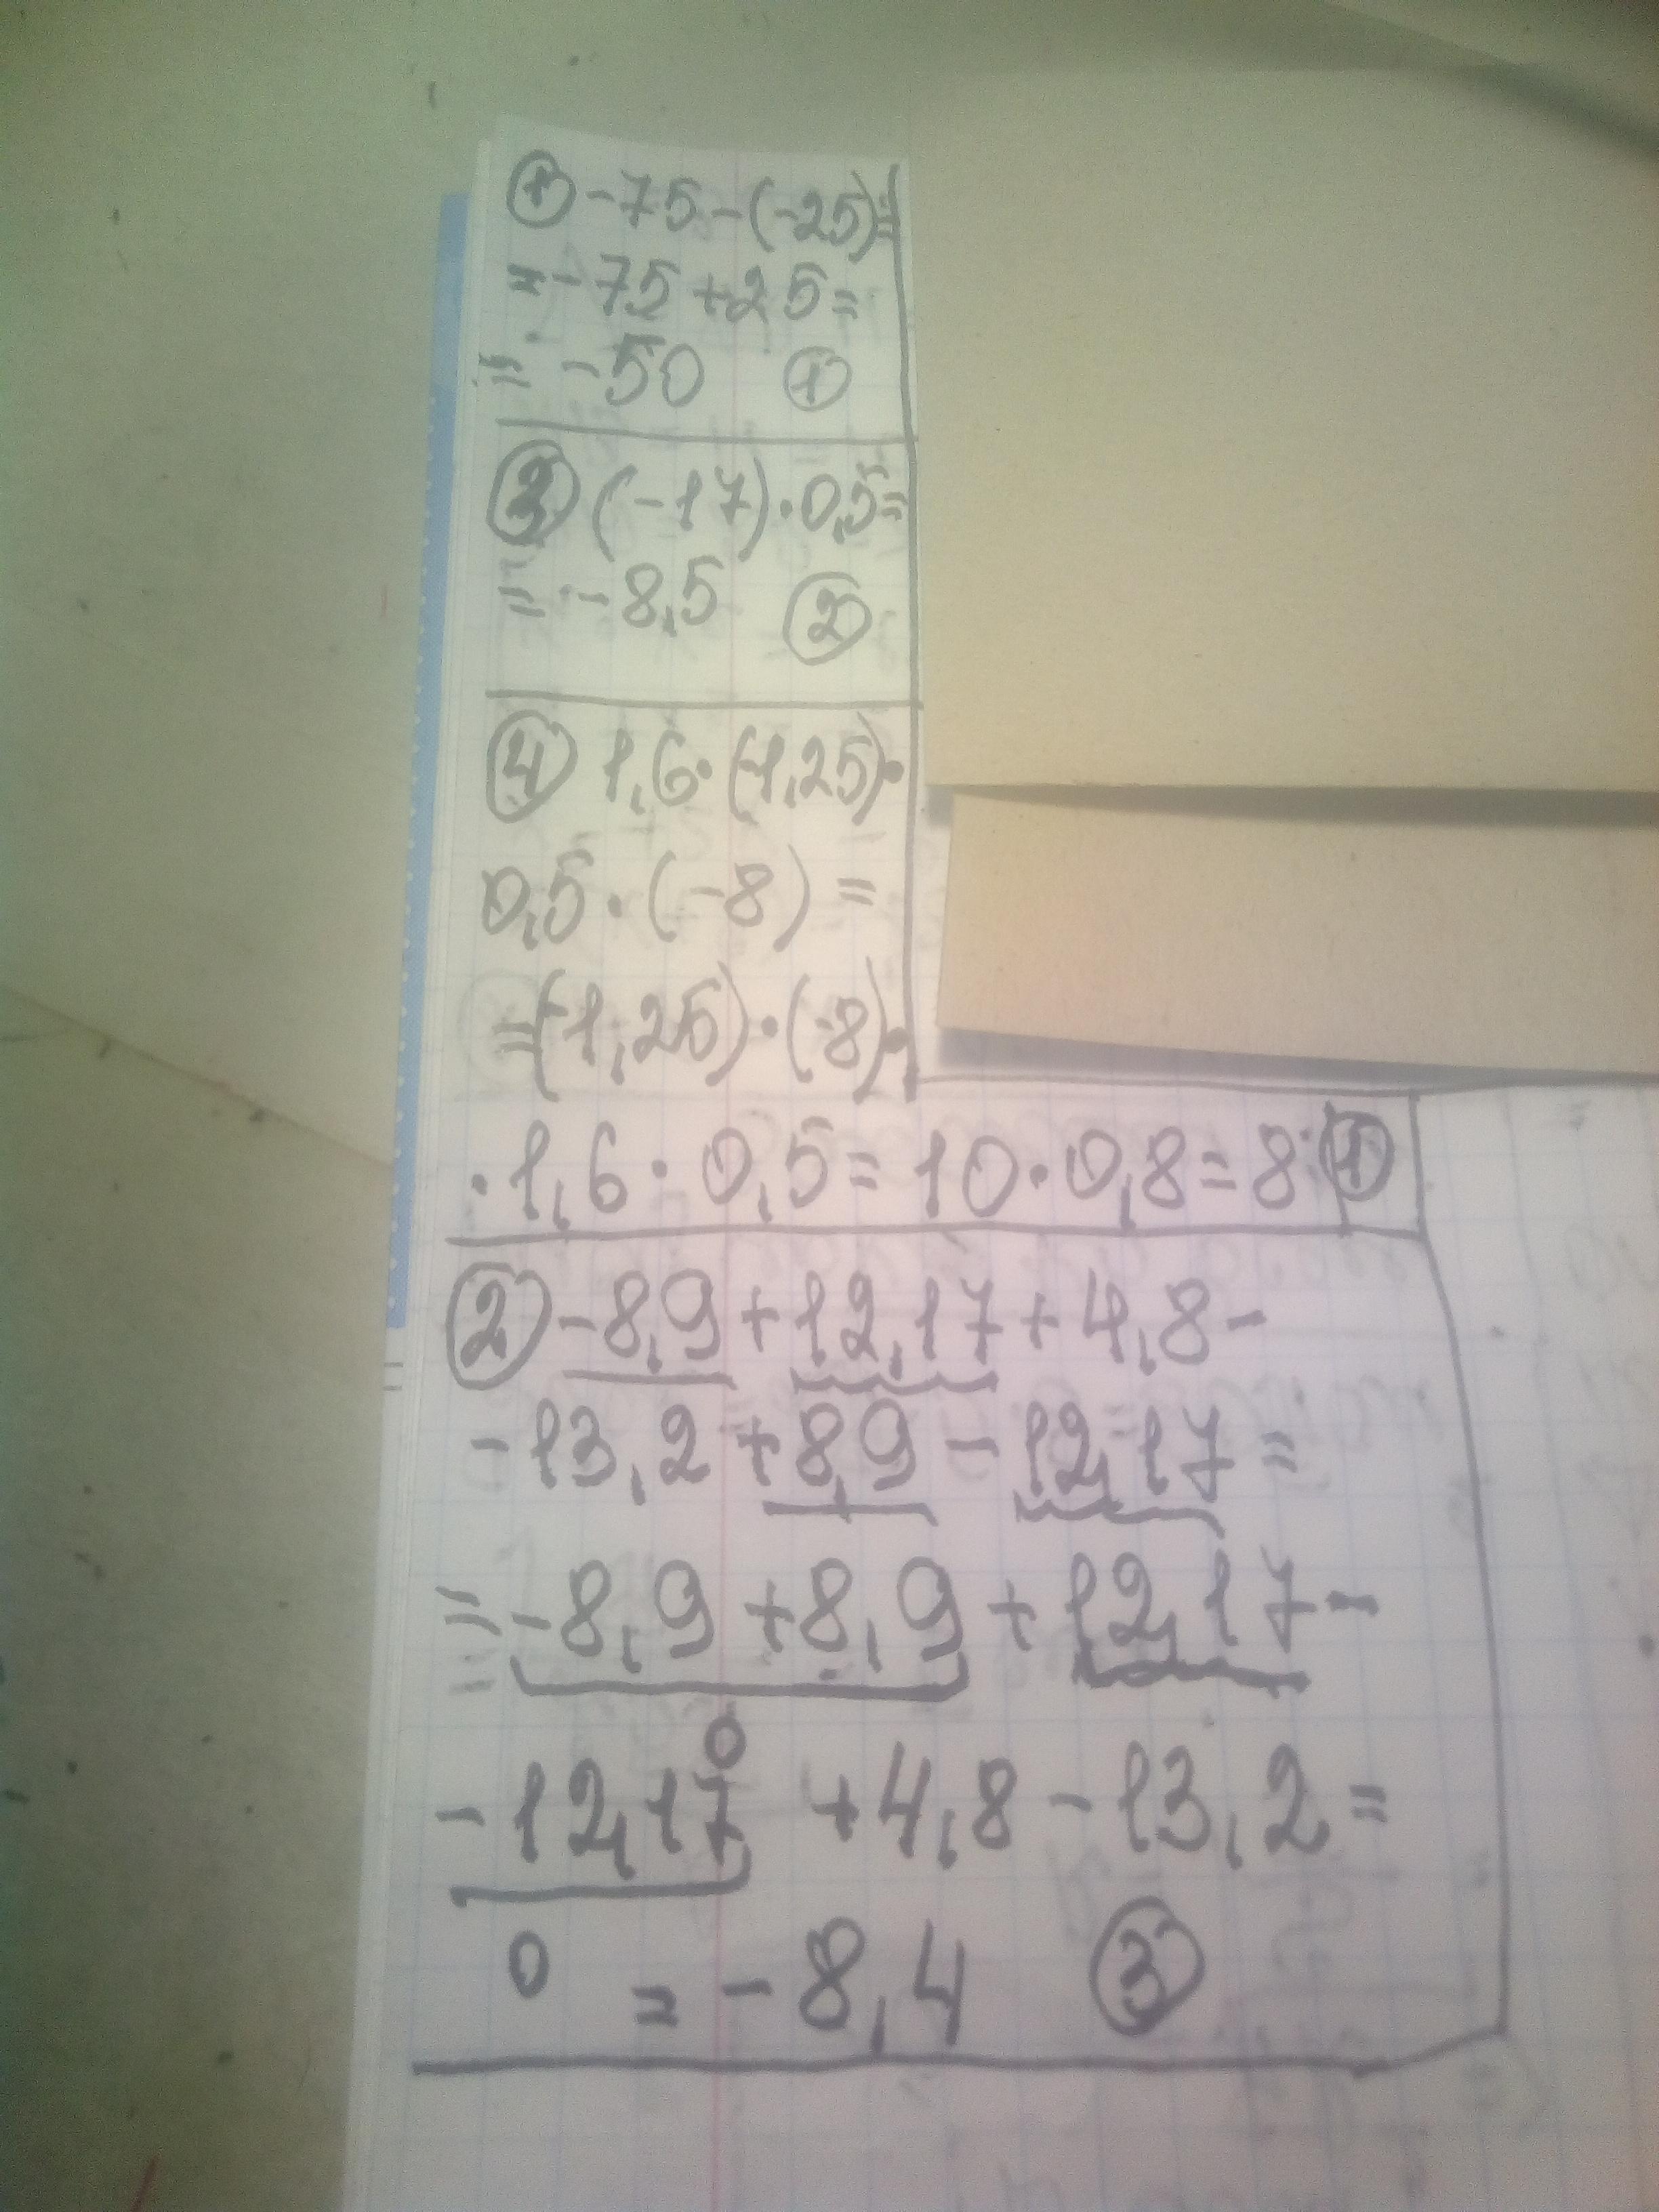 ① -75-(-25)=
=-75+25=
= -50 ①
③ (-17)·0,5=
= -8,5 ②
④ 1,6·(-1,25)·
0,5·(-8)=
=(-1,25)·(-8)·
·1,6·0,5=10·0,8=8 ①
② -8,9+12,17+4,8-
-13,2+8,9-12,17=
=-8,9+8,9+12,17-
0
-12,17 +4,8-13,2=
0 = -8,4 ③